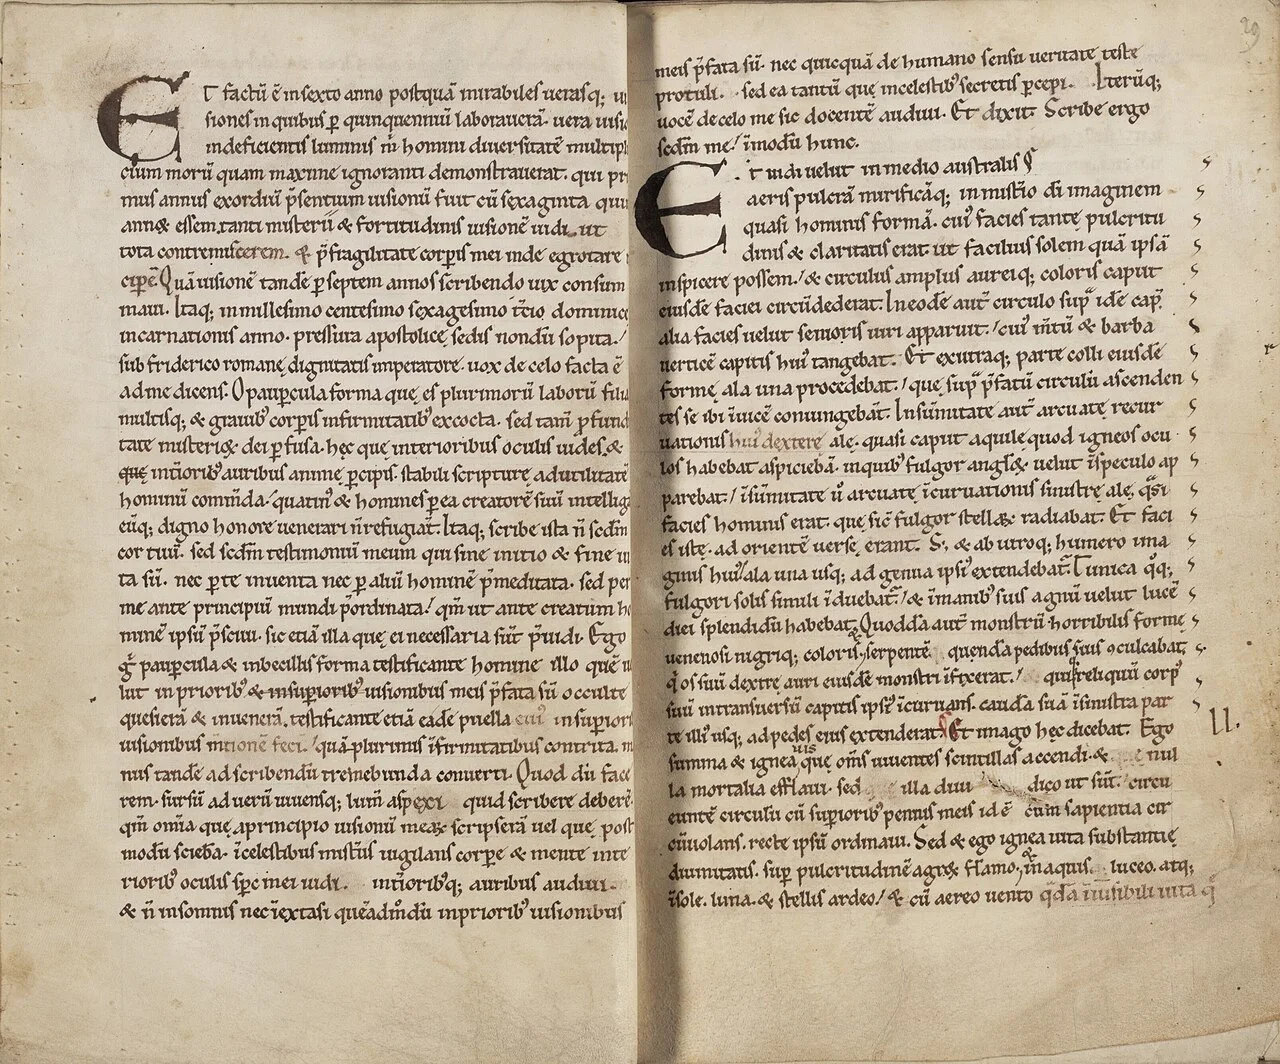 Et factū ē in sexto anno postquā mirabiles uerasq; ui
siones in quibus ꝑ quinquenniū laboraueram. uera uisio
indeficientis luminis m̄ homini diuersitatē multipli
cium morū quam maxime ignoranti demonstrauerat. qui pri
mus annus exordiū p̄sentium uisionū fuit cū sexaginta quin
annoꝝ essem. tanti misterii & fortitudinis uisionē uidi. ut
tota contremiscerem. & p̄ fragilitate corꝑis mei inde egrotare
ciꝑē. Quā uisionē tandē ꝑ septem annos scribendo uix consum
maui. Itaq; in millesimo centesimo sexagesimo t̄cio dominice
incarnationis anno. pressura apostolicę sedis nondū sopita.
sub friderico romanę dignitatis imperatore. uox de celo facta ē
ad me dicens. O pauꝑcula forma quę es plurimorū laborū filia
multisq; & grauib; corꝑis infirmitatib; excocta. sed tam̄ ꝓfundi
tate misterioꝝ dei ꝑfusa. hęc quę interioribus oculis uides. &
quę int̄iorib; auribus animę ꝑcipis. stabili scripturę ad utilitatē
hominū com̄nda. quatin; & homines ꝑ ea creatorē suū intelligant
eūq; digno honore uenerari n̄ refugiant. Itaq; scribe ista n̄ scd̄m
cor tuū. sed scd̄m testimoniū meum qui sine initio & fine ui
ta sū. nec ꝑ te inuenta nec ꝑ aliū hominē p̄meditata. sed per
me ante principiū mundi p̄ordinata. qm̄ ut ante creatum ho
minē ipsū p̄sciui. sic etiā illa quę ei necessaria sūt p̄uidi. Ego
g̊ pauꝑcula & inbecillis forma testificante homine illo quē ue
lut in priorib; & in suꝑiorib; uisionibus meis p̄fata sū occulte
quesierā & inuenerā. testificante etiā eadē puella cui; in suꝑiorib;
uisionibus mentionē feci. quā plurimis īfirmitatibus contrita. ma
nus tandē ad scribendū tremebunda conuerti. Quod dū face
rem. sursū ad uerū uiuensq; lum̄ aspexi quid scribere deberē.
qm̄ om̄ia quę a principio uisionū meaꝝ scripserā uel quę post
modū scieba. ī celestibus mist̄iis uigilans corꝑe & mente inte
rioribus oculis sp̄c mei uidi. int̄iorib;q; auribus audiui.
& n̄ in somnis nec ī extasi quēadm̊dū in priorib; uisionibus
29
meis p̄fata sū. nec quicquā de humano sensu ueritate teste
protuli. sed ea tantū quę in celestib; secretis ꝑcepi. Iterūq;
uocē de celo me sic docentē audiui. Et dixit. Scribe ergo
scd̄m me ī modū hunc.
Et uidi uelut in medio australis
aeris pulcrā mirificāq; in mist̄io dī imaginem
quasi hominis formā. cui; facies tante pulcritu
dinis & claritatis erat. ut facilius solem quā ipsā
inspicere possem. & circulus amplus aureiq; coloris caput
eiusdē faciei circūdederat. In eodē aut̄ circulo sup̄ idē cap;
alia facies uelut senioris uiri apparuit. cui; m̄tū & barba
uerticē capitis hui; tangebat. Et ex utraq; parte colli eiusdē
formę ala una procedebat. quę sup̄ p̄fatū circulū ascenden
tes se ibi īuicē coniungebāt. In sūmitate aut̄ arcuatę recur
uationis hui; dexterę alę. quasi caput aquilę quod igneos ocu
los habebat aspiciebā. in quib; fulgor angl̄oꝝ uelut ī speculo ap
parebat. ī sūmitate ū arcuatę īcuruationis sinistrę alę. q̄si
facies hominis erat. que sic̄ fulgor stellaꝝ radiabat. Et faci
es iste. ad orientē uersę erant. S; & ab utroq; humero ima
ginis hui; ala una usq; ad genua ipsi; extendebat̄. Tunica q̊q;
fulgori solis simili īduebat̄. & ī manib; suis agnū uelut lucē
diei splendidū habebat. Quoddā aut̄ monstrū horribilis formę
uenenosi nigriq; coloris. & serpentē quendā pedibus suis ꝯculcabat.
q̇ os suū dextrę auri eiusdē monstri īfixerat. qui reliquū corp;
suū in transuersū capitis ipsi; īcuruans. caudā suā ī sinistra par
te illi; usq; ad pedes eius extenderat. Et imago hęc dicebat. Ego
summa & ignea uis. que om̄s uiuentes scintillas accendi. & nul
la mortalia efflaui. sed illa diiudico ut sūt. circu
euntē circulū cū suꝑiorib; pennis meis id ē cum sapientia cir
cūuolans. recte ipsū ordinaui. Sed & ego ignea uita substantię
diuinitatis. suꝑ pulcritudinē agroꝝ flammo. & in aquis luceo. atq;
ī sole. luna. & stellis ardeo. & cū aereo uento q̄dā īuisibili uita q̄
II.